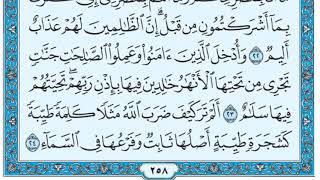 بِمَآ أَشْرَكْتُمُونِ مِن قَبْلُ ۗ إِنَّ ٱلظَّٰلِمِينَ لَهُمْ عَذَابٌ
أَلِيمٌ ٢٢ وَأُدْخِلَ ٱلَّذِينَ ءَامَنُوا۟ وَعَمِلُوا۟ ٱلصَّٰلِحَٰتِ جَنَّٰتٍ
تَجْرِى مِن تَحْتِهَا ٱلْأَنْهَٰرُ خَٰلِدِينَ فِيهَا بِإِذْنِ رَبِّهِمْ ۖ تَحِيَّتُهُمْ
فِيهَا سَلَٰمٌ ٢٣ أَلَمْ تَرَ كَيْفَ ضَرَبَ ٱللَّهُ مَثَلًا كَلِمَةً طَيِّبَةً
كَشَجَرَةٍ طَيِّبَةٍ أَصْلُهَا ثَابِتٌ وَفَرْعُهَا فِى ٱلسَّمَآءِ ٢٤
٢٥٨